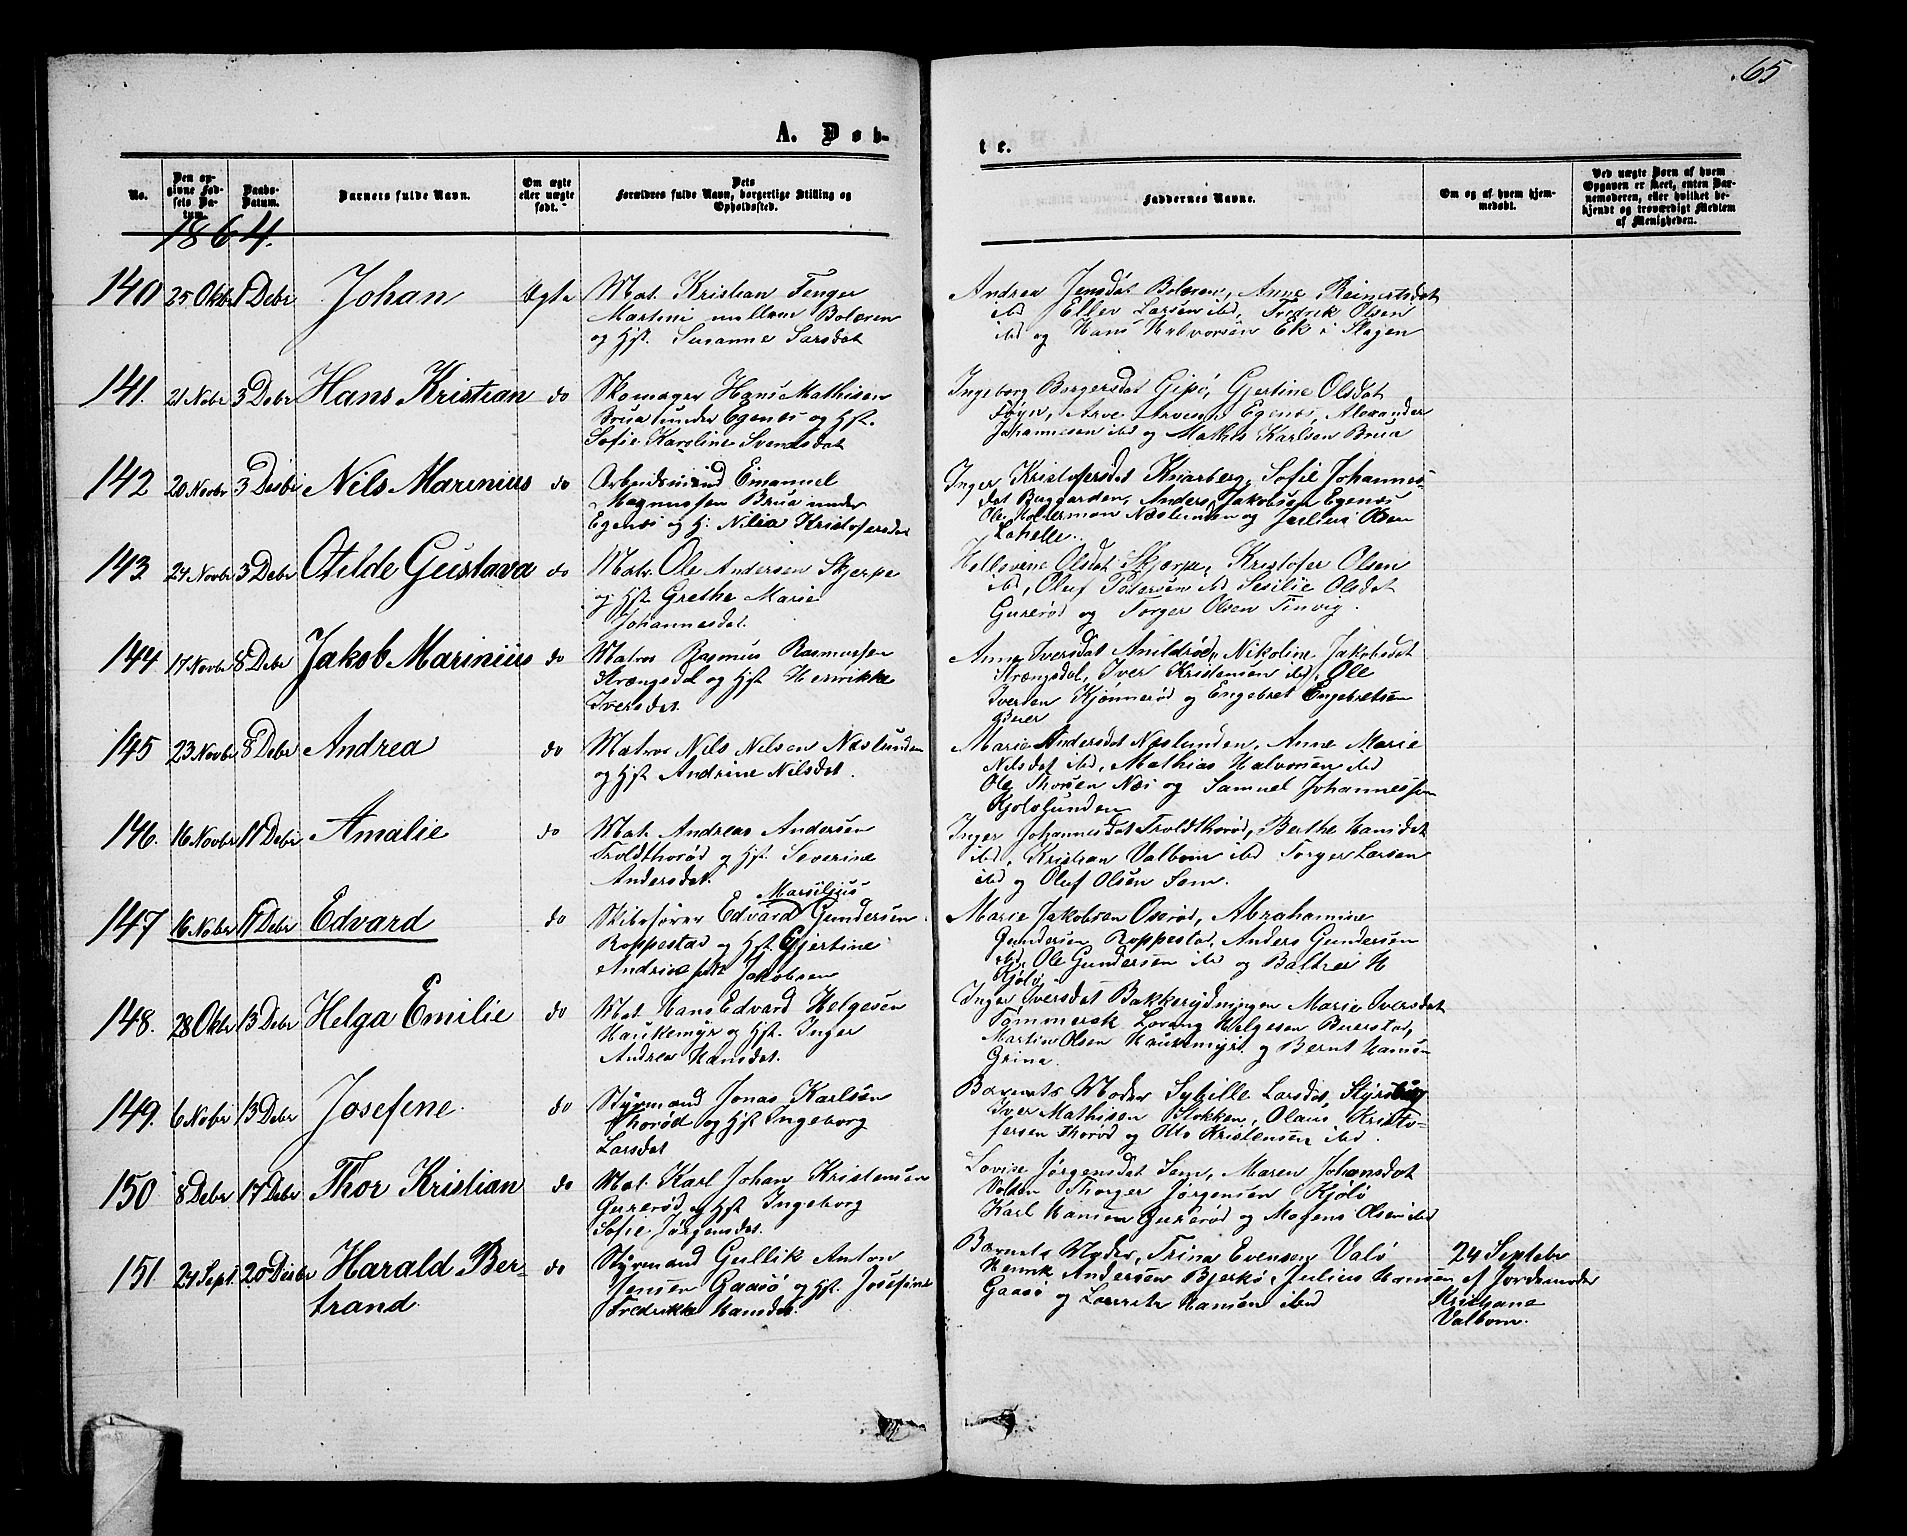 65
A. Døb-
te.
No.
Den opgivne Fødsels Datum.
Daabs-Datum.
Barnets fulde Navn.
Om ægte eller uægte født.
Dets Forældres fulde Navn, borgerlige Stilling og Opholdssted.
Faddernes Navne.
Om og af hvem hjemmedøbt.
Ved uægte Børn af hvem Opgaven er skeet, enten Barnemoderen, eller hvilket bekjendt og troværdigt Medlem af Menigheden.
1864.
140 25 Oktbr 1 Debr Johan Ægte
Mat. Kristian Fenger
Martini mellem Bolæren
og Hst. Susanne Larsdat
Andrea Jensdat Bolæren, Anne Reinertsdat
ibd Ellev Larsen ibd, Fredrik Olsen
ibd og Hans Halvorsen Ek i Slagen
141. 21 Nobr 3 Debr Hans Kristian do
Skomager Hans Mathisen
Brua under Egenes og Hst.
Sofie Karoline Svendsdat
Ingeborg Borgersdat Gipø, Gjertine Olsdat
Føyn, Arve Arvesen Egenes, Alexander
Johannesen ibd og Mathis Karlsen Brua
142 20 Novbr 3 Desbr Nils Marinius do
Arbeidsmand Emanuel
Magnussen Brua under
Egenes og H: Nilia Kristofersdat
Inger Kristofersdat Knarberg, Sofie Johannes-
dat Buggarden, Anders Jakobsen Egenæs
Ole Holterman Næslunden og Julius Olsen
143 24 Novbr 3 Debr Otilde Gustava do
Matr. Ole Andersen Skjerpe
og Hst Grethe Marie
Johannesdat.
Hellevine Olsdat Skjerpe, Kristofer Olsen
ibd, Oluf Pedersen ibd Sesilie Olsdat
Gurerød og Torger Olsen Tinvig.
144 17 Novbr 8 Debr Jakob Marinius do
Matros Rasmus Rasmussen
Strængsdal og Hst Henrikke
Iversdat.
Anne Iversdat Amildrød, Nikoline Jakobsdat
Strængsdal, Iver Kristensen ibd, Ole
Iversen Kjønnerød og Engebret Engebretsen
Buer
145 23 Novbr 8 Debr Andrea do
Matros Nils Nilsen Næslunden
og Hst Andrine Nilsdat.
Marie Andersdat Næslunden, Anne Marie
Nilsdat ibd, Mathias Halvorsen ibd
Ole Thorsen Næs og Samuel Johannessen
Kjøløslunden
146. 16 Novbr 11 Debr Amalie do
Mat. Andreas Andersen
Troldthorød og Hst. Severine
Andersdat.
Inger Johannesdat Troldthorød, Berthe Hansdat
ibd, Kristian Valbom ibd Torger Larsen
ibd og Oluf Olsen Sem.
147 16 Nobr 11 Debr Edvard do
Marsilius
Skibsfører Edvard Gundersen
Roppestad og Hst. Gjertine
Andrine født Jakobsen
Marie Jakobsen Oserød, Abrahamine
Gundersen Roppestad, Anders Gundersen
ibd, Ole Gundersen ibd og Baltzer H
Kjølø
148. 28 Oktr 13 Debr Helga Emilie do
Mat. Hans Edvard Helgesen
Haukemyr og Hst. Inger
Andrea Hansdat.
Inger Iversdat Bakkerydningen Marie Iversdat
Tømmersk Lorang Helgesen Buerstad,
Martin Olsen Haukemyr. og Bernt Hansen
Grina.
149. 6 Nobr 13 Debr Josefine. do
Styrmand Jonas Karlsen
Thorød og Hst Ingeborg
Larsdat
Barnets Moder Sybille Larsdat,
Iver Mathisen Stokken, Olaus Kristo-
fersen Thorød og Otto Kristensen ibd.
150 8 Debr 17 Debr Thor Kristian do
Mat. Karl Johan Kristensen
Gurerød og Hst Ingeborg
Sofie Jørgensdat.
Lovise Jørgensdat Sem, Maren Johansdat
Volden Thorger Jørgensen Kjølø
Karl Hansen Gurerød og Mogens Olsen ibd
151. 24 Sept. 20 Desbr Harald Ber-
trand. do
Styrmand Gullik Anton
Jensen Gaasø og Hst. Josefine
Fredrikke Hansdat
Barnets Moder, Trina Evensen Valø
Henrik Andersen Bjerkø, Julius Hansen
Gaasø og Lauritz Hansen ibd
24 Septebr
af Jordemoder
Kristiane
Valbom.